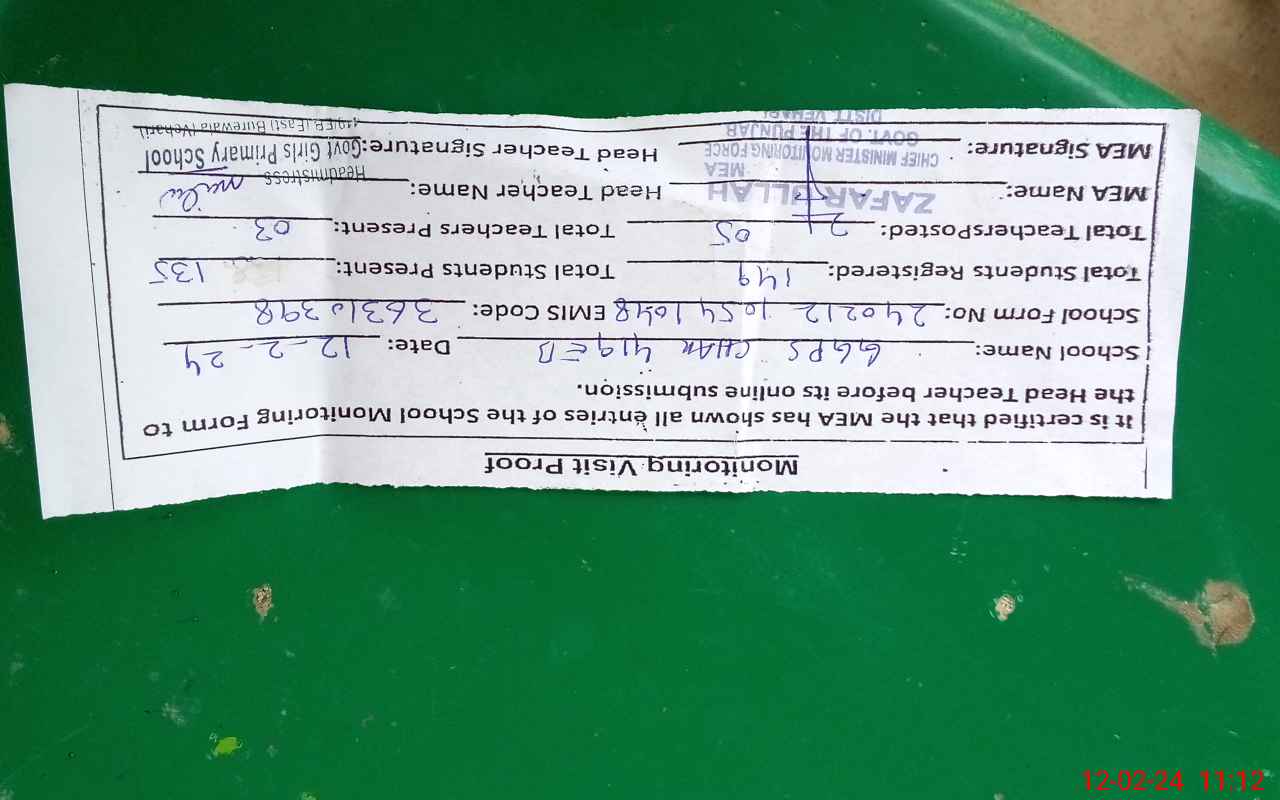 Monitoring Visit Proof
It is certified that the MEA has shown all entries of the School Monitoring Form to
the Head Teacher before its online submission.
School Name: GGPS CHAK 419 EB Date: 12-2-24
School Form No: 240212 10541048 EMIS Code: 36310398
Total Students Registered: 149 Total Students Present: 135
Total TeachersPosted: 05 Total Teachers Present: 03
MEA Name: ZAFAR ULLAH Head Teacher Name:
MEA
Headmistress
MEA Signature: Head Teacher Signature: Govt Girls Primary School
CHIEF MINISTER MONITORING FORCE
GOVT. OF THE PUNJAB
DISTT. VEHARI
419/E.B. (East) Burewala (Vehari)
12-02-24 11:12